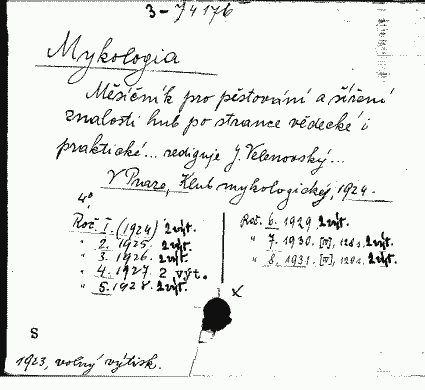 3-74176
Mykologia
Měsíčník pro pěstování a šíření
znalosti hub po strance vědecké i
praktické... rediguje J. Velenovský...
V Praze, Klub mykologický, 1924.
4°.
Roč. I. (1924) 2výt.
" 2. 1925. 2výt.
" 3. 1926. 2výt.
" 4. 1927. 2 výt.
" 5. 1928. 2výt.
Roč. 6. 1929 2výt.
" 7. 1930. [IV], 128 s. 2výt.
" 8. 1931. [IV], 120 s. 2výt.
x
S
1923, volný výtisk.